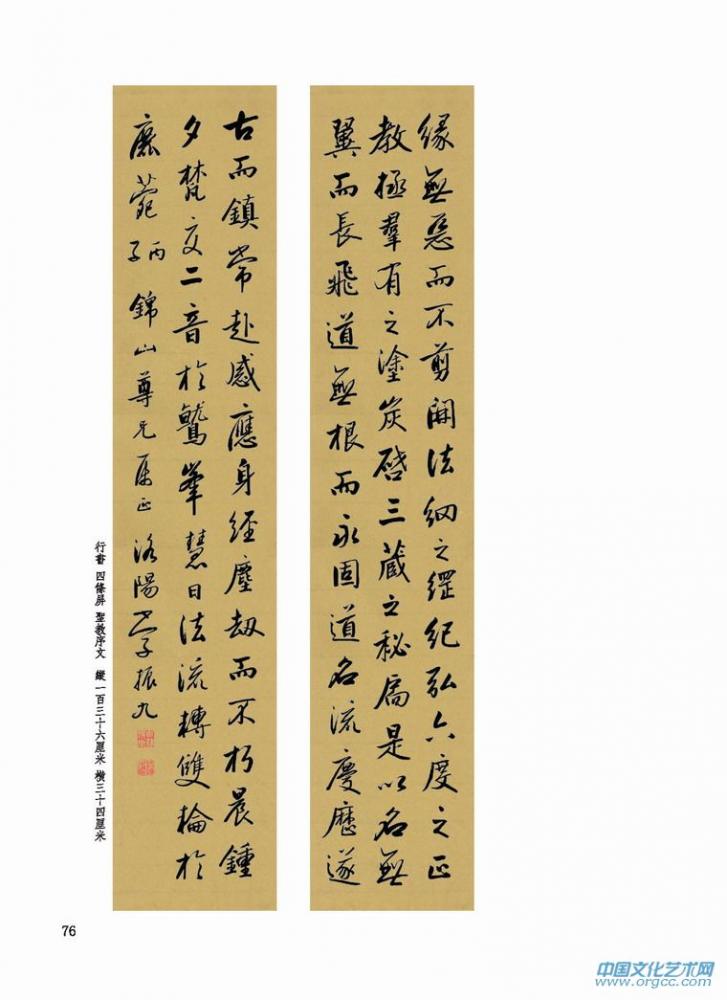 緣無惡而不剪開法網之綱紀弘六度之正
教拯羣有之塗炭啓三藏之秘扃是以名無
翼而長飛道無根而永固道名流慶歷遂
古而鎮常赴感應身經塵劫而不朽晨鍾
夕梵交二音於鷲峯慧日法流轉雙輪於
鹿菀 丙子 錦山尊兄属正 洛陽李振九
行書 四條屏 聖教序文 縱一百三十六厘米 橫三十四厘米
76
中国文化艺术网
www.orgcc.com